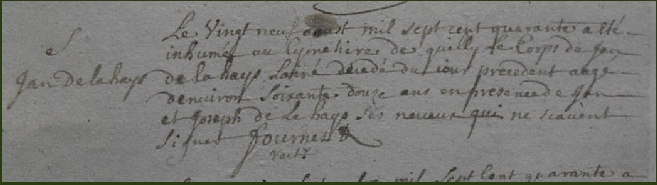 S
Jan De la hays
Le Vingt neuf aoust mil sept cent quarante a eté
inhumé au Cymetiere de quilly le Corps de Jan
de la hays decedé du iour precedent aagé
denviron soixante douze ans en presence de Jan
et Joseph de la hays ses neveux qui ne scavent
signer Fournier
mil sept Cent quarante a